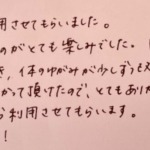 用させてもらいました。
のがとても楽しみでした。
き、体のゆがみが少しずつ
がって頂けたので、とてもあり
利用させてもらいます。
！